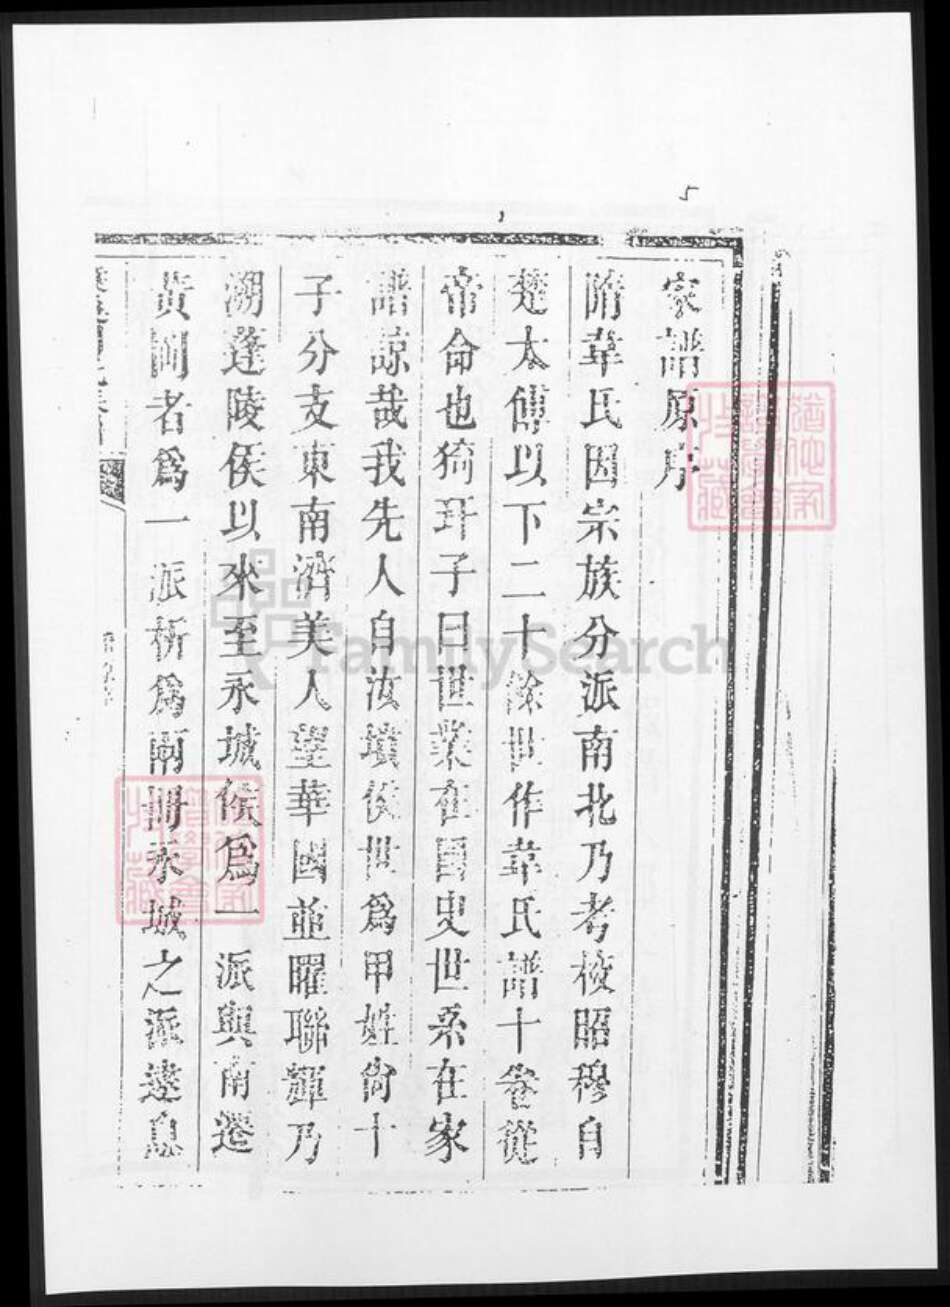 5
家譜原序
隋韋氏因宗族分派南北乃考校昭穆自
楚太傅以下二十餘世作韋氏譜十卷從
帝命也猗玗子曰世業在國史世系在家
譜諒哉我先人自汝墳侯世爲甲姓尙十
子分支東南濟美人望華國並曜聯輝乃
溯蓬陵侯以來至永城侯爲一派與南遷
黃 者爲一派析爲兩冊永城之派遠息
FamilySearch